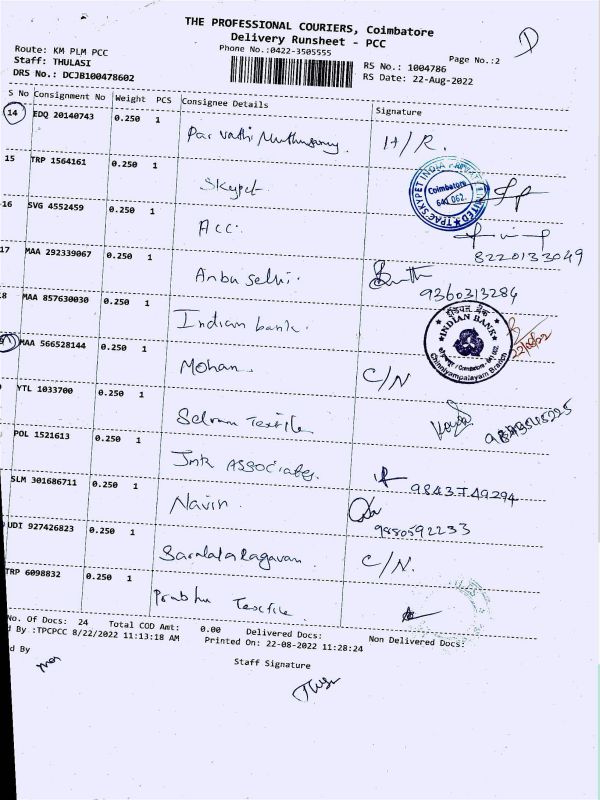 THE PROFESSIONAL COURIERS, Coimbatore
Delivery Runsheet - PCC
Phone No.:0422-3505555
Page No.:2
Route: KM PLM PCC
Staff: THULASI
DRS No.: DCJB100478602
RS No.: 1004786
RS Date: 22-Aug-2022
S No Consignment No Weight PCS Consignee Details Signature
14 EDQ 20140743 0.250 1 Parvathi Muthusamy H/R.
15 TRP 1564161 0.250 1 Skypet
TPAC SKYPET INDIA PRIVATE LIMITED Coimbatore 641 062.
16 SVG 4552459 0.250 1 Acc. 8220133049
17 MAA 292339067 0.250 1 Anbu selvi. 9360313284
18 MAA 857630030 0.250 1 Indian bank.
इंडियन बैंक INDIAN BANK Chinniyampalayam Branch 22/08/22
MAA 566528144 0.250 1 Mohan. C/N
YTL 1033700 0.250 1 Selvam Textile
POL 1521613 0.250 1 Jmk Associates. 9843749294
SLM 301686711 0.250 1 Navin. 9880592233
UDI 927426823 0.250 1 C/N.
TRP 6098832 0.250 1 Prabhu Textile.
No. Of Docs: 24 Total COD Amt: 0.00 Delivered Docs: Non Delivered Docs:
d By :TPCPCC 8/22/2022 11:13:18 AM Printed On: 22-08-2022 11:28:24
d By
Staff Signature